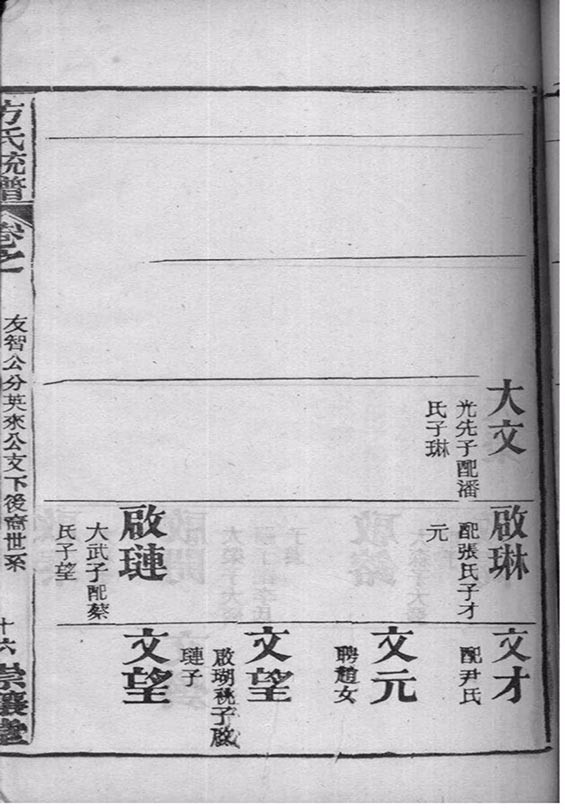 大文
光先子配潘
氏子琳
啟琳
配張氏子才
元
啟璉
大武子配蔡
氏子望
文才
配尹氏
文元
聘趙女
文望
啟瑚祧子啟
璉子
文望
方氏統譜
卷之一
友智公分英來公支下後裔世系
十六
崇讓堂